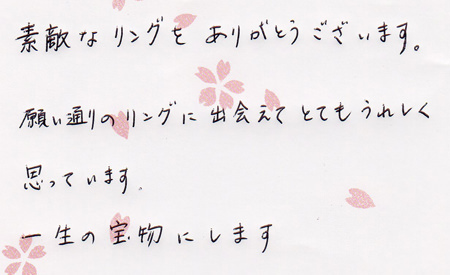 素敵なリングをありがとうございます。
願い通りのリングに出会えてとてもうれしく
思っています。
一生の宝物にします